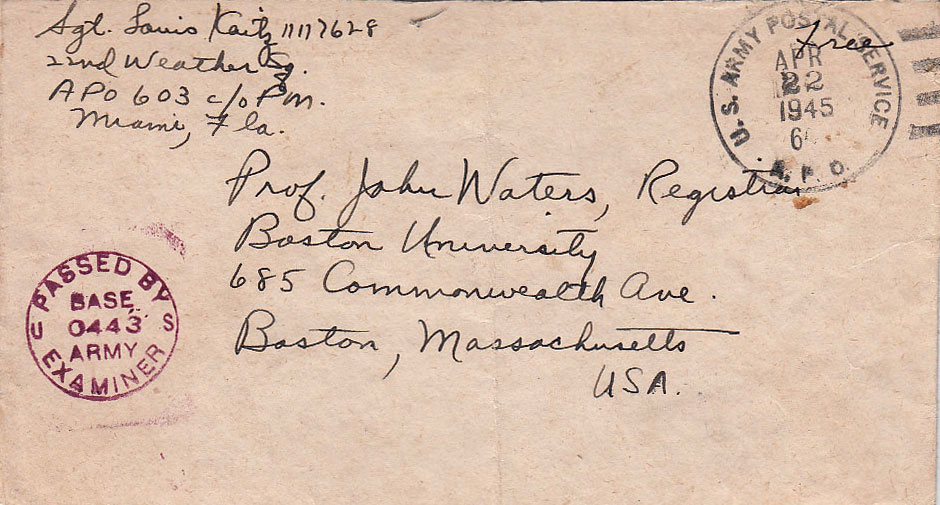 Sgt. Louis Kaitz 11117628
22nd Weather Sq.
APO 603 c/o P.M.
Miami, Fla.
Free
U.S. ARMY POSTAL SERVICE
APR
22
1945
A.P.O.
Prof. John Waters, Registrar
Boston University
685 Commonwealth Ave.
Boston, Massachusetts
USA.
PASSED BY
BASE
U 0443 S
ARMY
EXAMINER